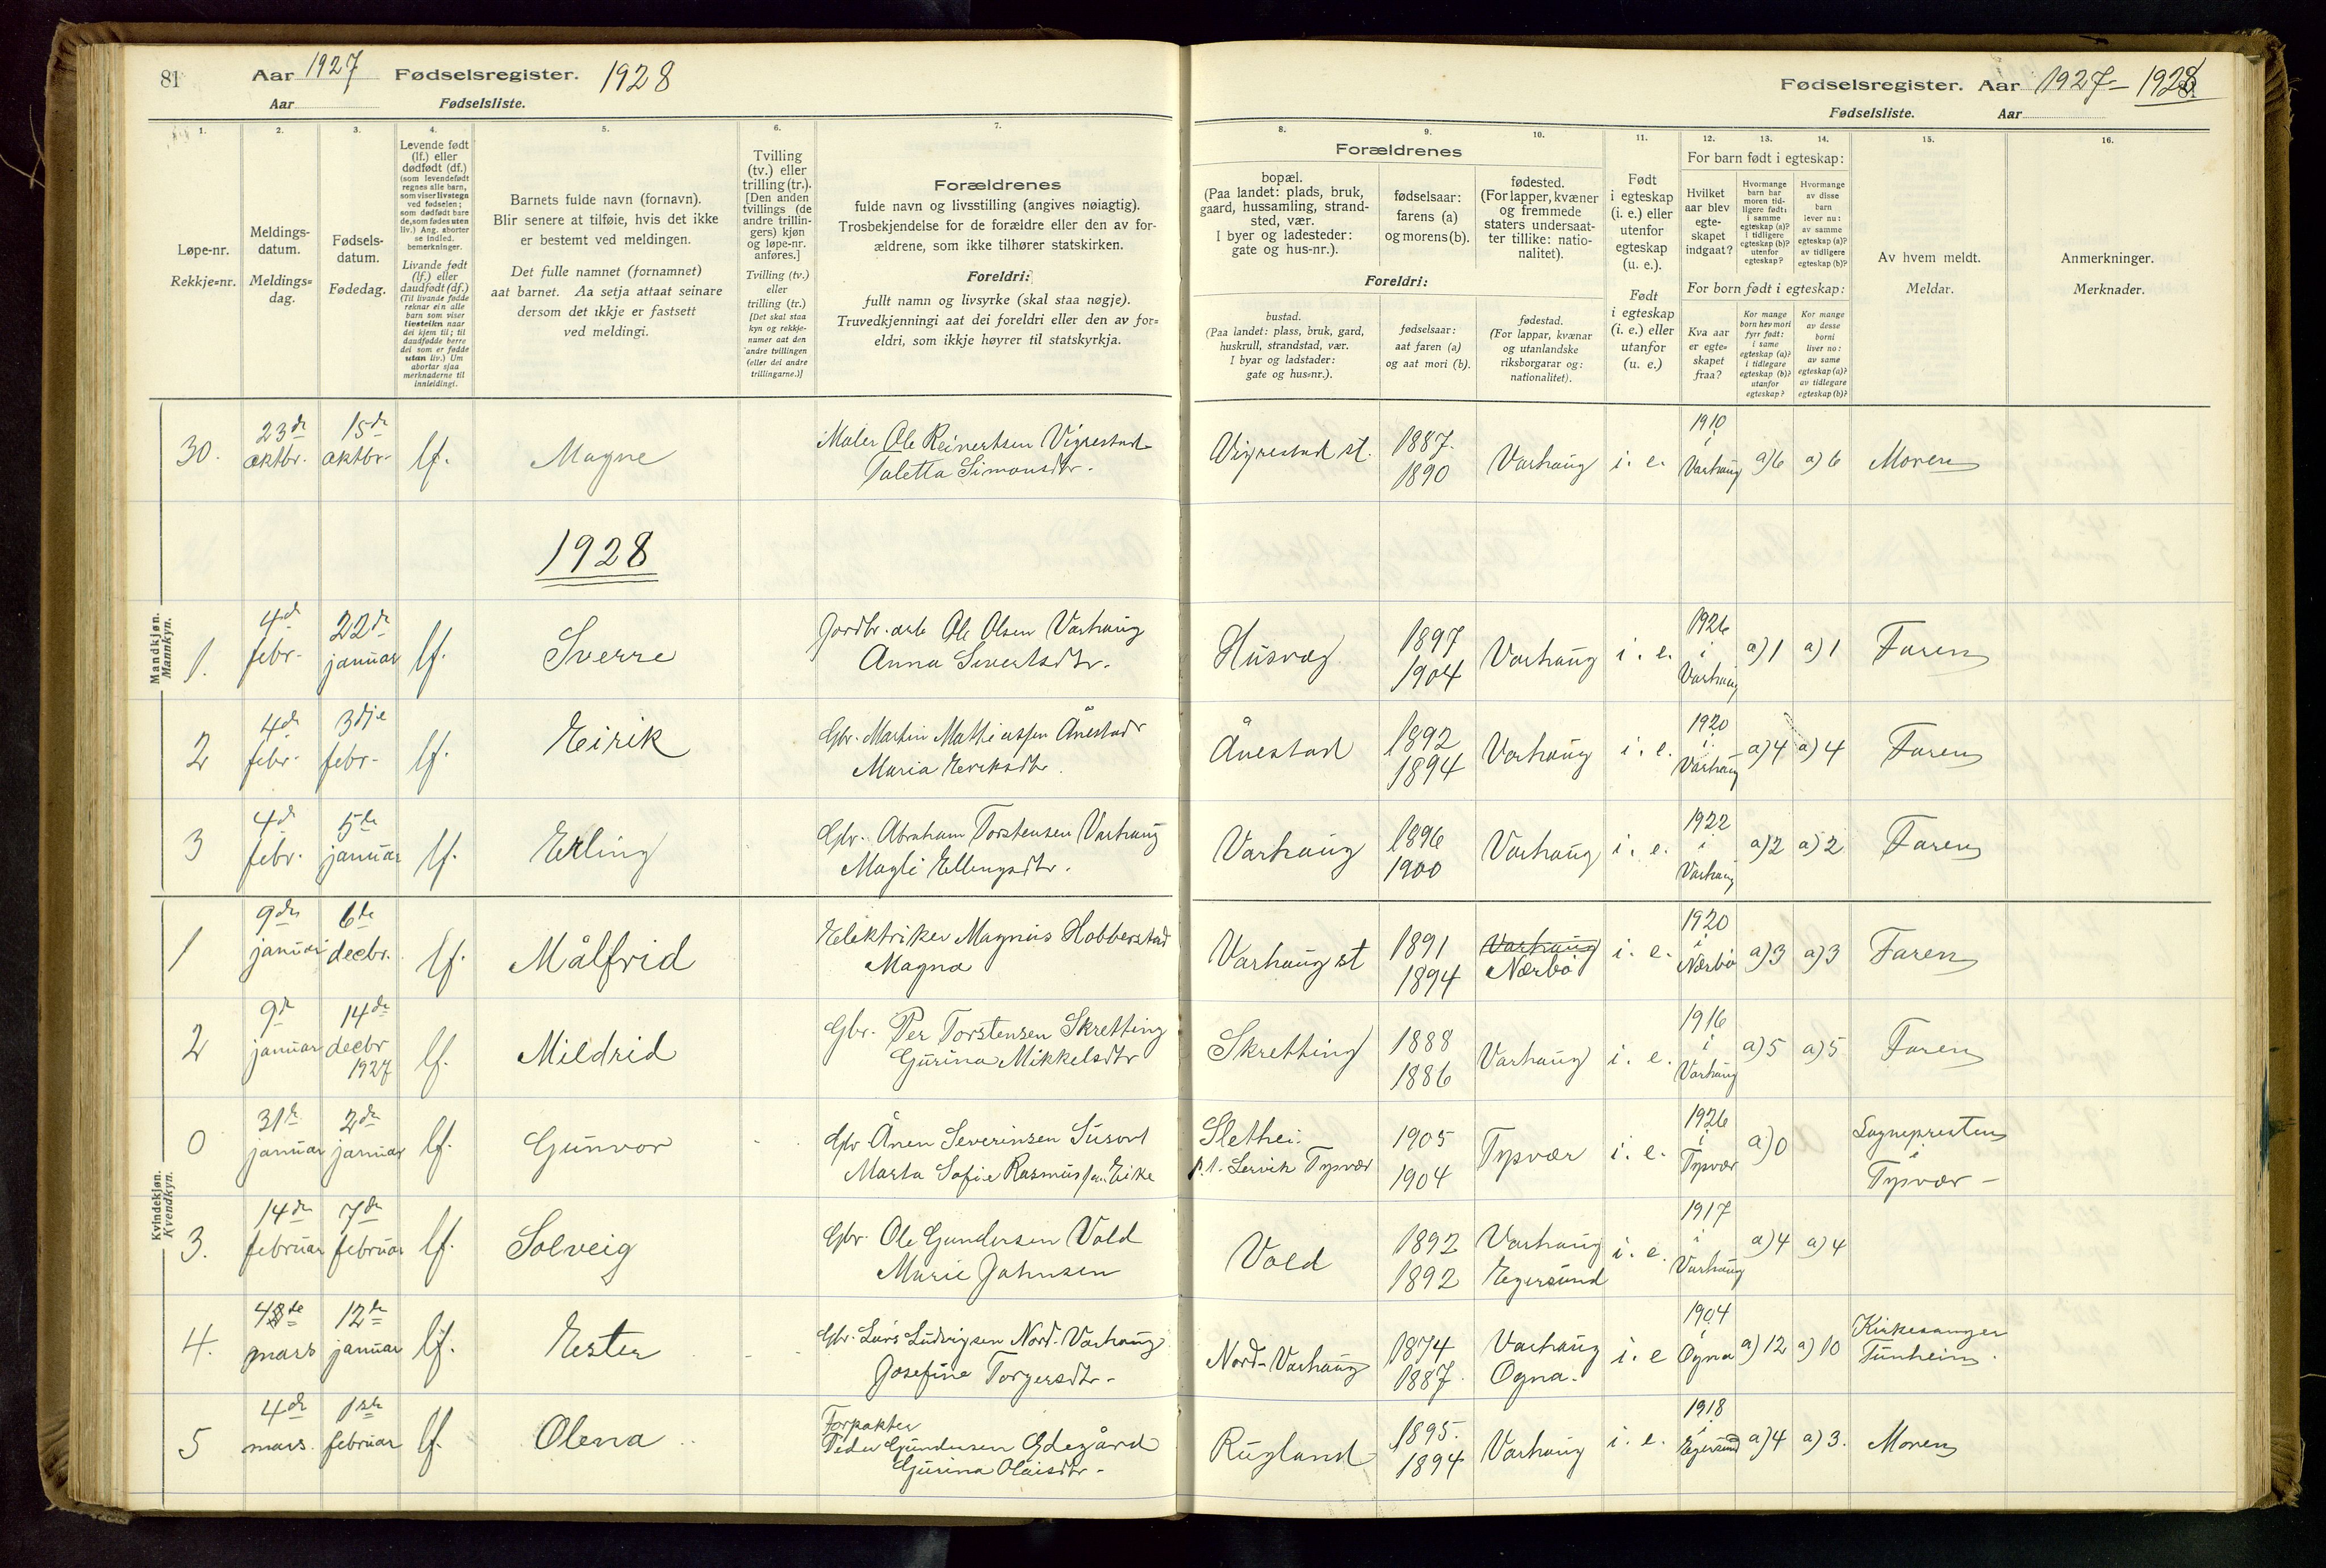 81
Aar 1927 Fødselsregister. 1928
Aar Fødselsliste.
Fødselsregister. Aar 1927-1928
Fødselsliste. Aar
1.
Løpe-nr.
Rekkje=nr.
2.
Meldings-
datum.
Meldings=
dag.
3.
Fødsels-
datum.
Fødedag.
4.
Levende født
(lf.) eller
dødfødt (df.)
(som levendefødt
regnes alle barn,
som viser livstegn
ved fødselen;
som dødfødt bare
de, som fødes uten
liv.) Ang. aborter
se indled.
bemerkninger.
Livande født
(lf.) eller
daudfødt (df.)
(Til livande fødde
reknar ein alle
barn som viser
livsteikn naar
dei kjem til; til
daudfødde berre
dei som er fødde
utan liv.) Um
abortar sjaa
merknaderne til
innleidingi.
5.
Barnets fulde navn (fornavn).
Blir senere at tilføie, hvis det ikke
er bestemt ved meldingen.
Det fulle namnet (fornamnet)
aat barnet. Aa setja attaat seinare
dersom det ikkje er fastsett
ved meldingi.
6.
Tvilling
(tv.) eller
trilling (tr.).
[Den anden
tvillings (de
andre trillin-
gers) kjøn
og løpe-nr.
anføres.]
Tvilling (tv.)
eller
trilling (tr.)
[Det skal staa
kyn og rekkje-
numer aat den
andre tvillingen
(eller dei andre
trillingarne.)]
7.
Forældrenes
fulde navn og livsstilling (angives nøiagtig).
Trosbekjendelse for de forældre eller den av for-
ældrene, som ikke tilhører statskirken.
Foreldri:
fullt namn og livsyrke (skal staa nøgje).
Truvedkjenningi aat dei foreldri eller den av for=
eldri, som ikkje høyrer til statskyrkja.
Forældrenes
8.
bopæl.
(Paa landet: plads, bruk,
gaard, hussamling, strand-
sted, vær.
I byer og ladesteder:
gate og hus-nr.).
9.
fødselsaar:
farens (a)
og morens (b).
10.
fødested.
(For lapper, kvæner
og fremmede
staters undersaat-
ter tillike: natio-
nalitet).
Foreldri:
bustad.
(Paa landet: plass, bruk, gard,
huskrull, strandstad, vær.
I byar og ladstader:
gate og hus=nr.).
fødselsaar:
aat faren (a)
og aat mori (b).
fødestad.
(For lappar, kvænar
og utanlandske
riksborgarar og:
nationalitet).
11.
Født
i egteskap
(i. e.) eller
utenfor
egteskap
(u. e.).
Født
i egteskap
(i. e.) eller
utanfor
(u. e.)
For barn født i egteskap:
12.
Hvilket
aar blev
egte-
skapet
indgaat?
13.
Hvormange
barn har
moren tid-
ligere født:
i samme
egteskap (a)?
i tidligere
egteskap (b)?
utenfor
egteskap?
14.
Hvormange
av disse
barn
lever nu:
av samme
egteskap (a)?
av tidligere
egteskap (b)?
For born født i egteskap:
Kva aar
er egte=
skapet
fraa?
Kor mange
born hev mori
fyrr født:
i same
egteskap (a)?
i tidlegare
egteskap (b)?
utanfor
egteskap?
Kor mange
av desse
borni
liver no:
av same
egteskap (a)?
av tidlegare
egteskap (b)?
15.
Av hvem meldt.
Meldar.
16.
Anmerkninger.
Merknader.
Mandkjøn.
Mannkyn.
30. 23de oktbr. 15de oktbr. lf. Magne
Maler Ole Reinertsen Vigrestad
Taletta Simonsdtr.
Vigrestad st. 1887. 1890 Varhaug i. e. 1910 i Varhaug a) 6 a) 6 Moren
1928
1. 4de febr. 22de januar lf. Sverre
Jordbr. arb Ole Olsen Varhaug
Anna Sivertsdtr.
Husvæg 1897 1904 Varhaug i. e. 1926 i Varhaug a) 1 a) 1 Faren
2 4de febr. 3dje febr. lf. Eirik
Gbr. Martin Mathiassen Ånestad
Maria Eriksdtr.
Ånestad 1892 1894 Varhaug i. e. 1920 i Varhaug a) 4 a) 4 Faren
3 4de febr. 5te januar lf. Erling
Gbr. Abraham Torstensen Varhaug
Magli Ellingsdtr.
Varhaug 1896 1900 Varhaug i. e. 1922 i Varhaug a) 2 a) 2 Faren
Kvindekjøn.
Kvendkyn.
1 9de januar 6te decbr. lf. Målfrid
Elektriker Magnus Hobberstad
Magna
Varhaug st 1891 1894 Varhaug Nærbø i. e. 1920 i Nærbø a) 3 a) 3 Faren
2 9de januar 14de decbr 1927 lf. Mildrid
Gbr. Per Torstensen Skretting
Gurina Mikkelsdtr
Skretting 1888 1886 Varhaug i. e. 1916 i Varhaug a) 5 a) 5 Faren
0 31te januar 2den januar lf. Gunvor
Gbr Ånen Severinsen Susort
Marta Sofie Rasmussen Eike
Slethei.
p.t. Lervik Tysvær 1905 1904 Tysvær i. e. 1926 i Tysvær a) 0
Sognepresten
i
Tysvær -
3. 14de februar 7de februar lf. Solveig
Gbr. Ole Gundersen Vold
Marie Johnsen
Vold 1892 1892 Varhaug Egersund i. e. 1917 i Varhaug a) 4 a) 4
4. 4de mars 12te januar lf. Ester
Gbr. Lars Ludvigsen Nord-Varhaug
Josefine Torgersdtr.
Nord-Varhaug 1874 1887. Varhaug Ogna. i. e 1904 i Ogna a) 12 a) 10 Kirkesanger
Tunheim.
5 4de mars. 1ste februar lf. Olena
Forpakter
Peder Gundersen Ødegård
Gurina Olaisdtr.
Rugland 1895. 1894 Varhaug i. e. 1918 i Egersund a) 4 a) 3. Moren